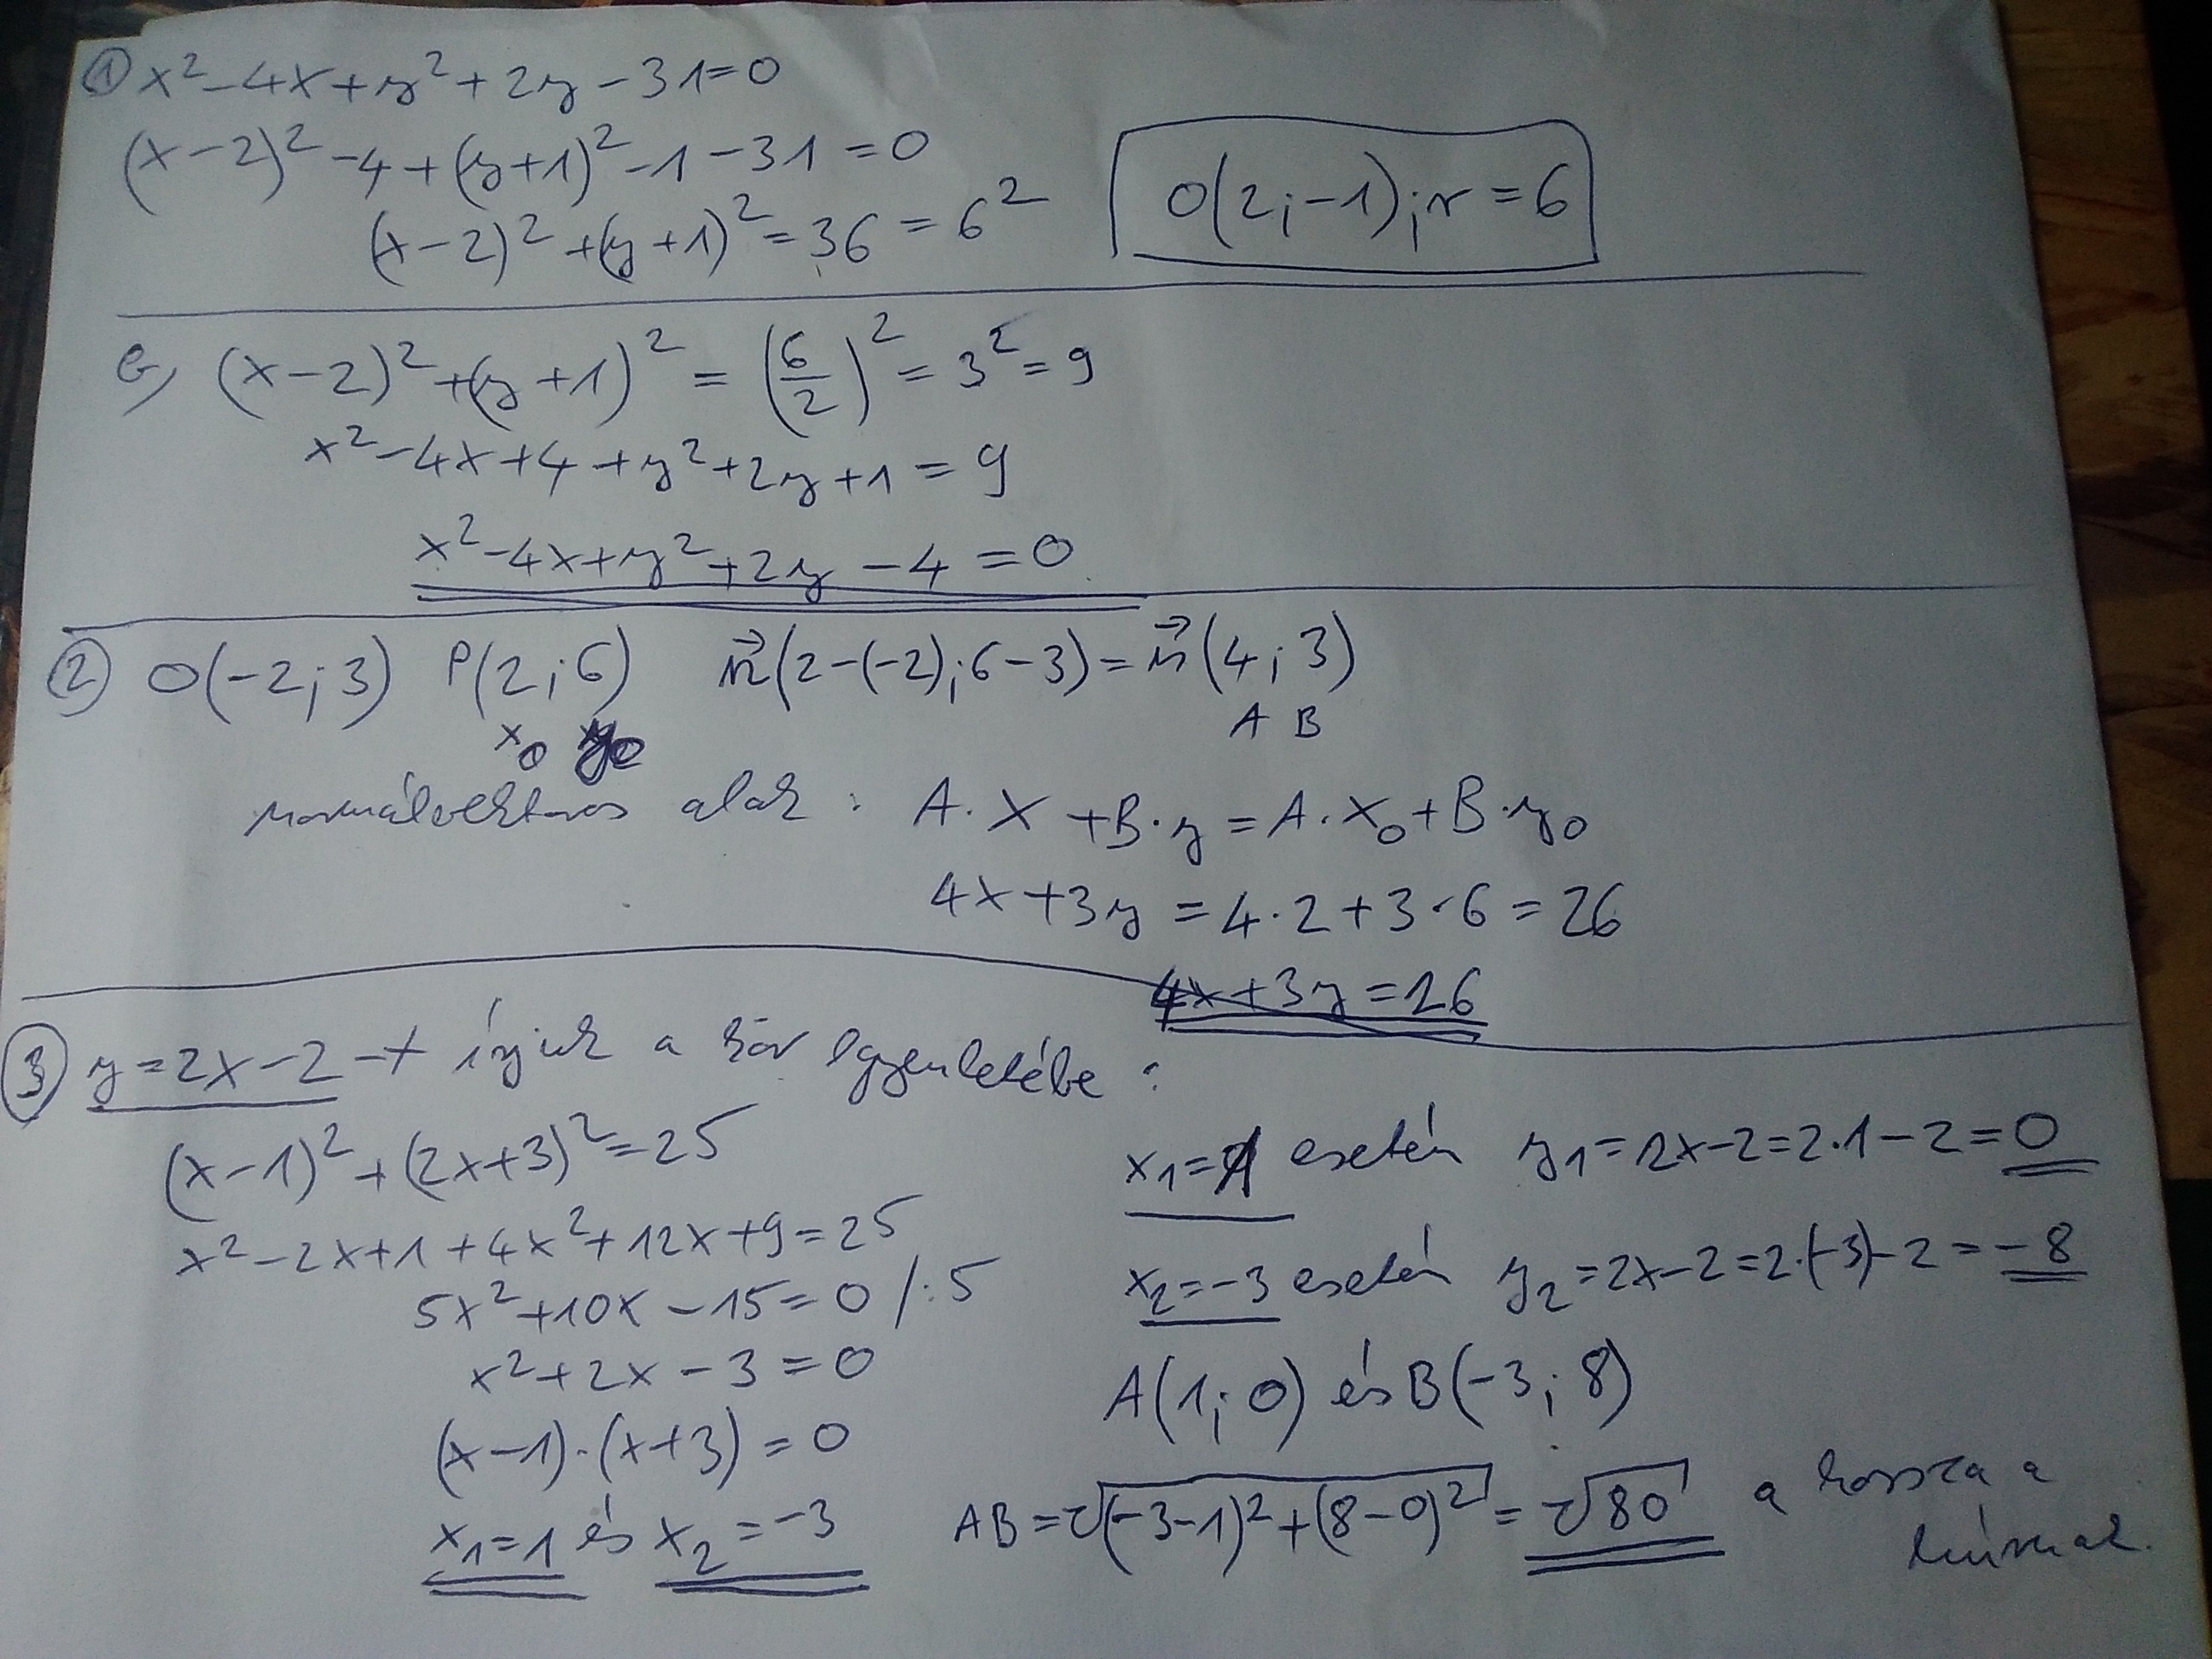 ① x² - 4x + y² + 2y - 31 = 0
(x-2)² - 4 + (y+1)² - 1 - 31 = 0
(x-2)² + (y+1)² = 36 = 6²
O(2;-1); r = 6
b, (x-2)² + (y+1)² = (6/2)² = 3² = 9
x² - 4x + 4 + y² + 2y + 1 = 9
x² - 4x + y² + 2y - 4 = 0
② O(-2;3) P(2;6) n⃗(2-(-2);6-3) = n⃗(4;3)
x₀ y₀ A B
normálvektoros alak: A·x + B·y = A·x₀ + B·y₀
4x + 3y = 4·2 + 3·6 = 26
4x + 3y = 26
③ y = 2x - 2 → írjuk a kör egyenletébe:
(x-1)² + (2x+3)² = 25
x² - 2x + 1 + 4x² + 12x + 9 = 25
5x² + 10x - 15 = 0 /:5
x² + 2x - 3 = 0
(x-1)·(x+3) = 0
x₁ = 1 és x₂ = -3
x₁ = 1 esetén y₁ = 2x - 2 = 2·1 - 2 = 0
x₂ = -3 esetén y₂ = 2x - 2 = 2·(-3) - 2 = -8
A(1;0) és B(-3;8)
AB = √((-3-1)² + (8-0)²) = √80 a hossza a
húrnak.